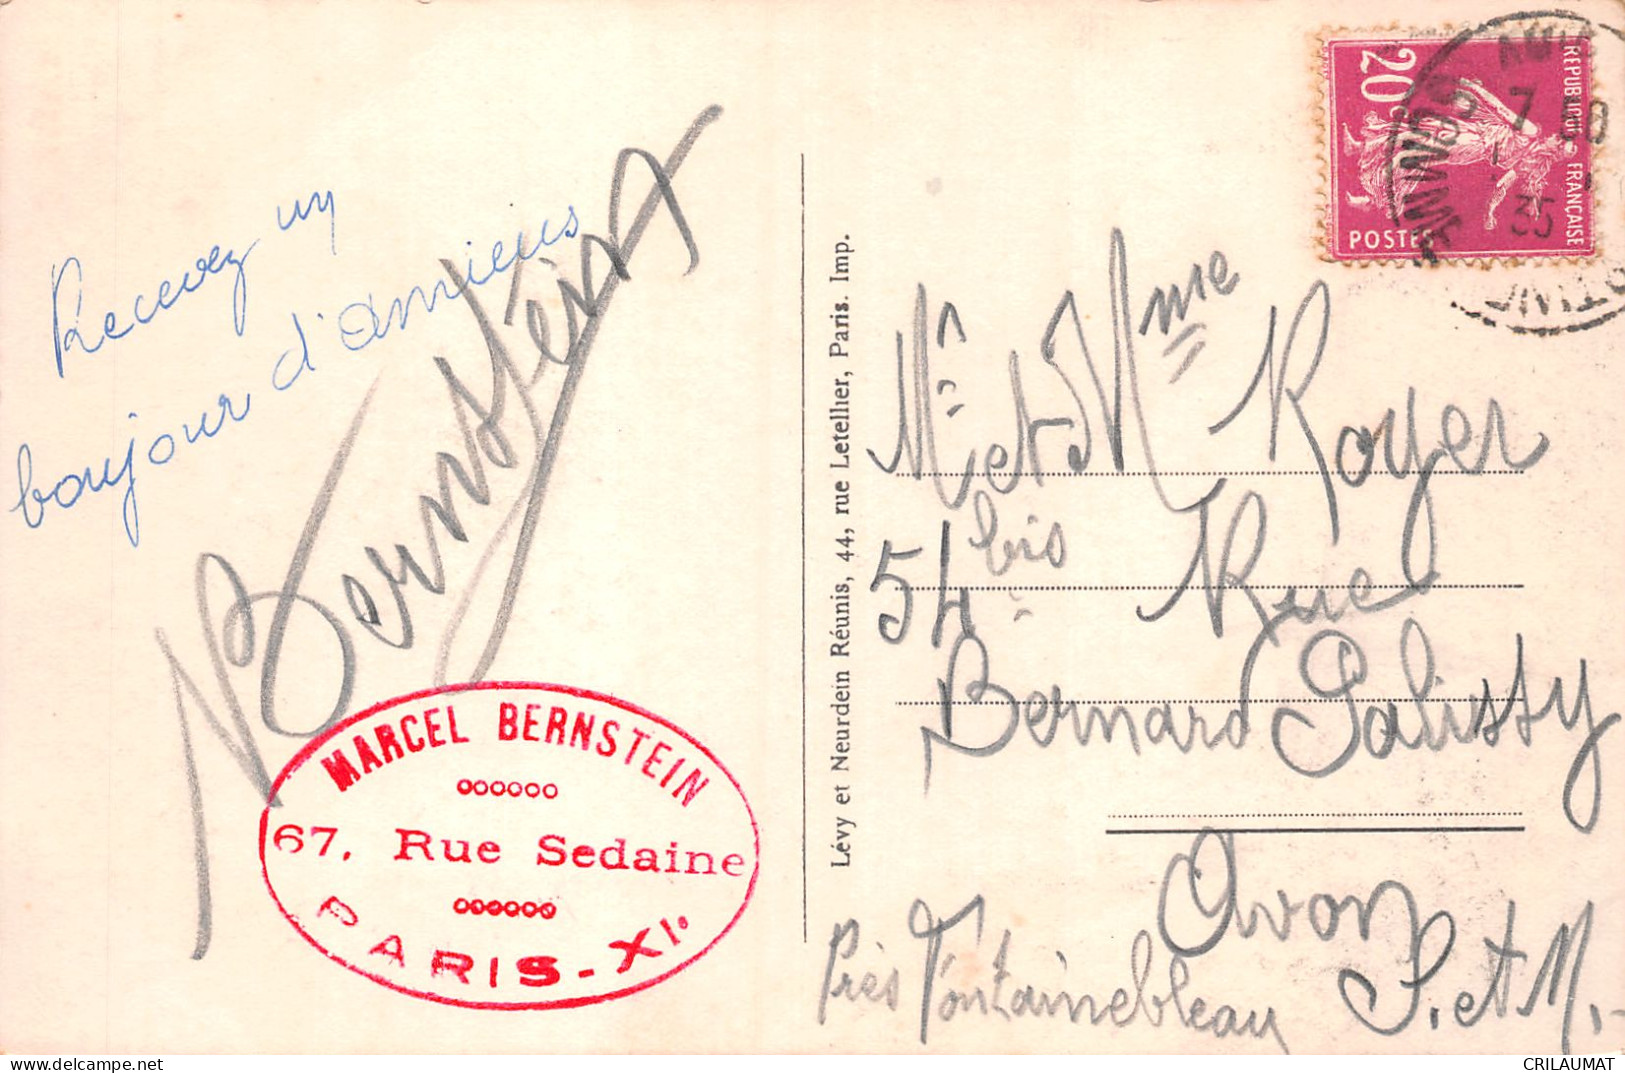 Recevez un
bonjour d'Amiens
Bernstein
MARCEL BERNSTEIN
67, Rue Sedaine
PARIS-XIe
Lévy et Neurdein Réunis, 44, rue Letellier, Paris. Imp.
REPUBLIQUE FRANÇAISE
20c
POSTES
7
35
Mr et Mme Royer
54 bis Rue
Bernard Palissy
Avon
Près Fontainebleau S. et M.
CRILAUMAT